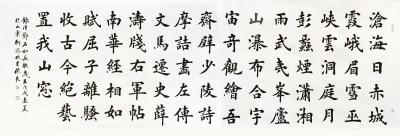 滄海日赤城
霞峨眉雪巫
峽雲洞庭月
彭蠡煙瀟湘
雨武夷峯廬
山瀑布合宇
宙奇觀繪吾
齋壁少陵詩
摩詰畫左傳
文馬遷史薛
濤牋右軍帖
南華經相如
賦屈子離騷
收古今絕藝
置我山窓